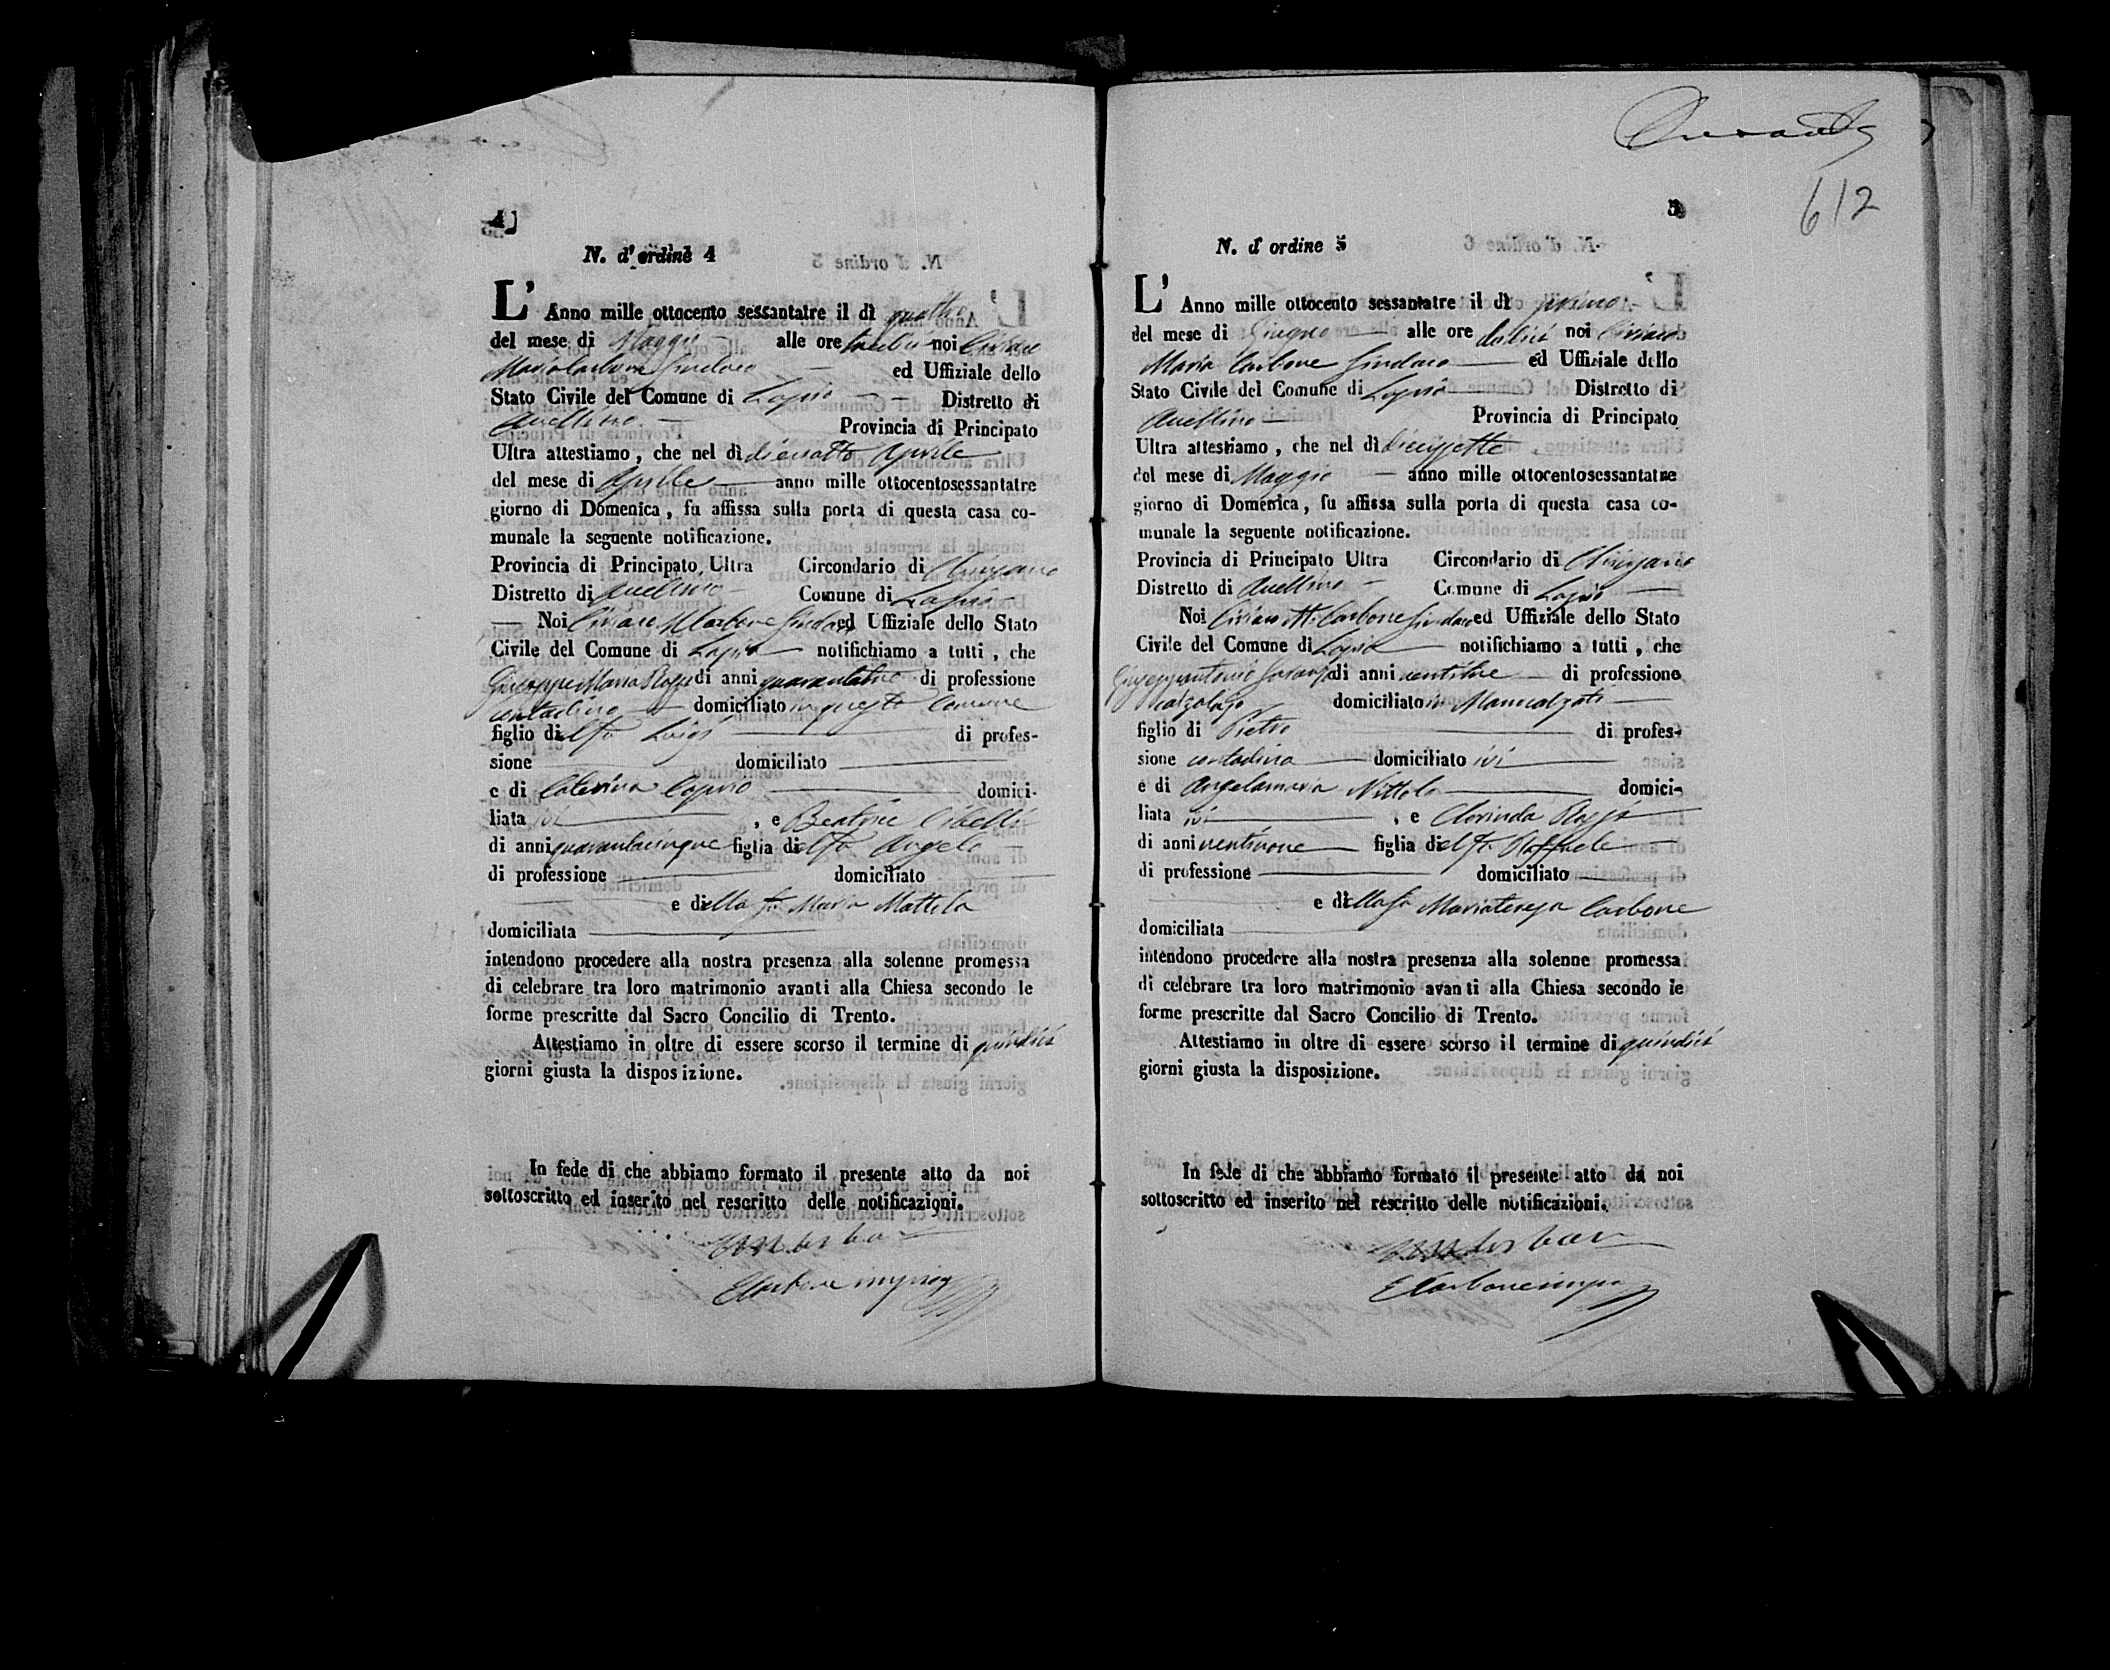 4
N. d'ordine 4
L'Anno mille ottocento sessantatre il dì quattro
del mese di Maggio alle ore noi Ciriaco
Maria Carbone Sindaco ed Uffiziale dello
Stato Civile del Comune di Lapio Distretto di
Avellino Provincia di Principato
Ultra attestiamo, che nel dì dieciotto Aprile
del mese di Aprile anno mille ottocentosessantatre
giorno di Domenica, fu affissa sulla porta di questa casa co-
munale la seguente notificazione.
Provincia di Principato Ultra Circondario di Chiusano
Distretto di Avellino Comune di Lapio
Noi Ciriaco M Carbone Sindaco ed Uffiziale dello Stato
Civile del Comune di Lapio notifichiamo a tutti, che
Giuseppe Maria di anni quarantatre di professione
contadino domiciliato in questo Comune
figlio del fu Luigi di profes-
sione domiciliato
e di Caterina Caprio domici-
liata ivi, e Beatrice Cibelli
di anni quarantacinque figlia del fu Angelo
di professione domiciliato
e della fu Maria Mattela
domiciliata
intendono procedere alla nostra presenza alla solenne promessa
di celebrare tra loro matrimonio avanti alla Chiesa secondo le
forme prescritte dal Sacro Concilio di Trento.
Attestiamo in oltre di essere scorso il termine di quindici
giorni giusta la disposizione.
In fede di che abbiamo formato il presente atto da noi
sottoscritto ed inserito nel rescritto delle notificazioni.
CMCarbone
612
5
N. d'ordine 5
L'Anno mille ottocento sessantatre il dì primo
del mese di Giugno alle ore dodici noi Ciriaco
Maria Carbone Sindaco ed Uffiziale dello
Stato Civile del Comune di Lapio Distretto di
Avellino Provincia di Principato
Ultra attestiamo, che nel dì diecisette
del mese di Maggio anno mille ottocentosessantatre
giorno di Domenica, fu affissa sulla porta di questa casa co-
munale la seguente notificazione.
Provincia di Principato Ultra Circondario di Chiusano
Distretto di Avellino Comune di Lapio
Noi Ciriaco M. Carbone Sindaco ed Uffiziale dello Stato
Civile del Comune di Lapio notifichiamo a tutti, che
Giuseppantonio di anni ventitre di professione
calzolajo domiciliato in Manocalzati
figlio di Pietro di profes-
sione contadino domiciliato ivi
e di Angelamaria Nittolo domici-
liata ivi, e Clorinda
di anni ventinove figlia del fu Raffaele
di professione domiciliato
e della fu Mariateresa Carbone
domiciliata
intendono procedere alla nostra presenza alla solenne promessa
di celebrare tra loro matrimonio avanti alla Chiesa secondo le
forme prescritte dal Sacro Concilio di Trento.
Attestiamo in oltre di essere scorso il termine di quindici
giorni giusta la disposizione.
In fede di che abbiamo formato il presente atto da noi
sottoscritto ed inserito nel rescritto delle notificazioni.